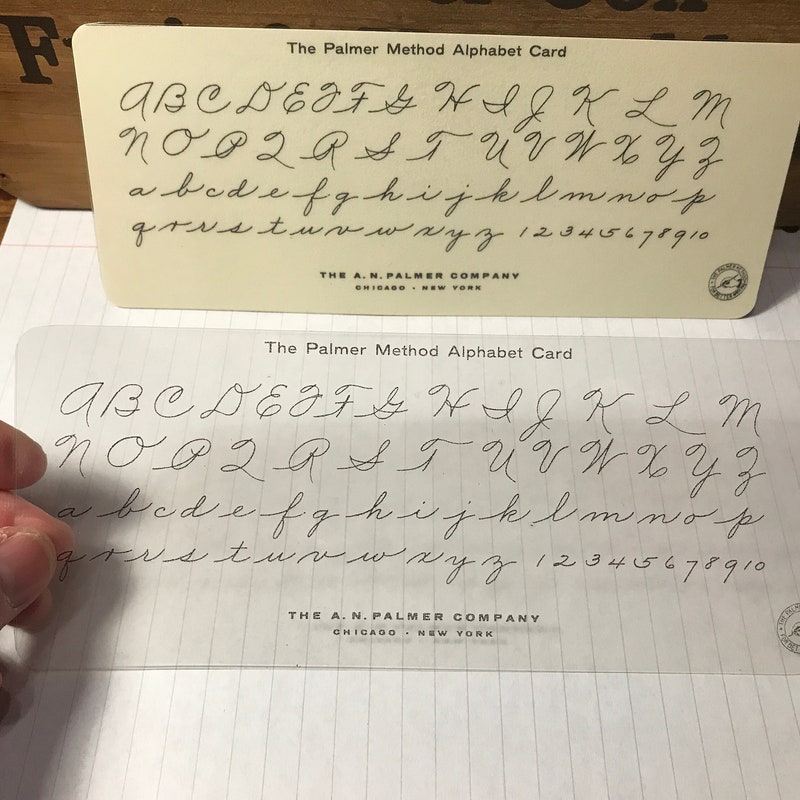 The Palmer Method Alphabet Card
A B C D E F F G H I J K L M
N O P Q R S T U V W X Y Z
a b c d e f g h i j k l m n o p
q r r s t u v w x y z 1 2 3 4 5 6 7 8 9 10
THE A. N. PALMER COMPANY
CHICAGO · NEW YORK
The Palmer Method Alphabet Card
A B C D E F F G H I J K L M
N O P Q R S T U V W X Y Z
a b c d e f g h i j k l m n o p
q r r s t u v w x y z 1 2 3 4 5 6 7 8 9 10
THE A. N. PALMER COMPANY
CHICAGO · NEW YORK